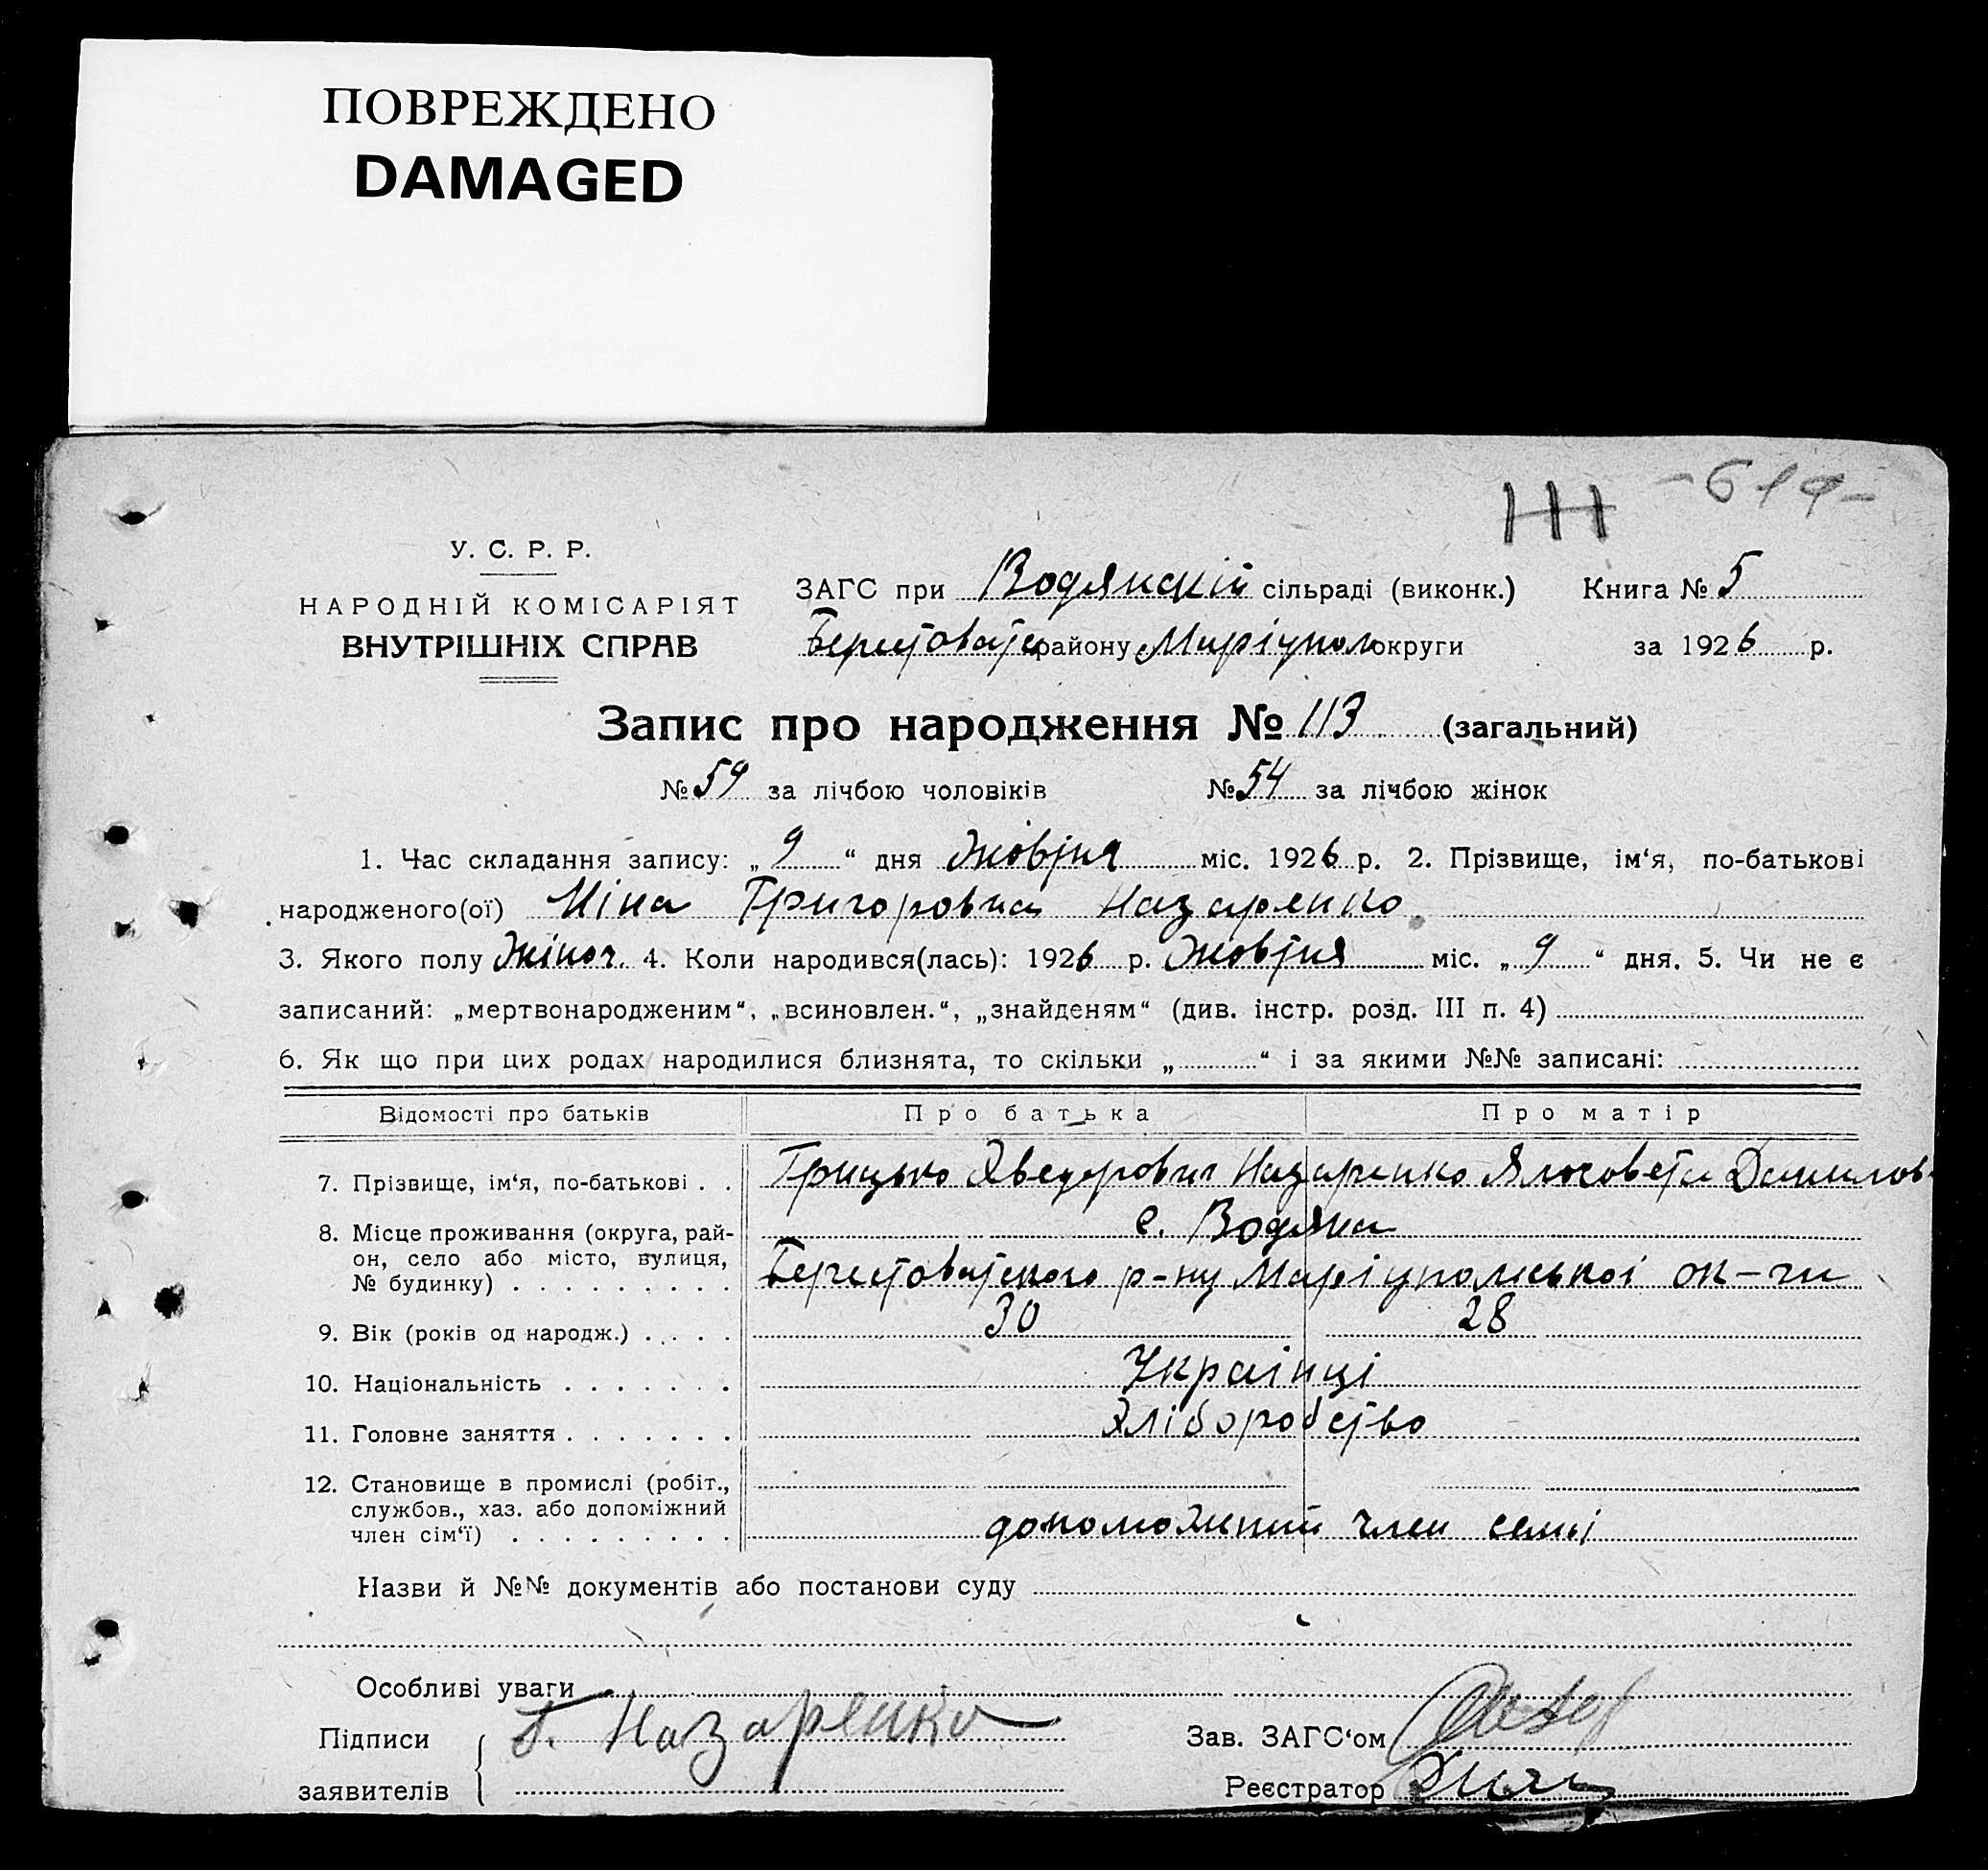 ПОВРЕЖДЕНО
DAMAGED
У. С. Р. Р.
НАРОДНІЙ КОМІСАРІЯТ
ВНУТРІШНІХ СПРАВ
ЗАГС при Водянскій сільраді (виконк.) Книга № 5
Берестоватс району Маріупол округи за 1926 р.
Запис про народження № 113 (загальний)
№ 59 за лічбою чоловіків № 54 за лічбою жінок
1. Час складання запису: „ 9 “ дня Жовтня міс. 1926 р. 2. Прізвище, ім‘я, по-батькові
народженого(ої) Ніна Григоровна Назаренко
3. Якого полу Жіноч. 4. Коли народився(лась): 1926 р. Жовтня міс. „ 9 “ дня. 5. Чи не є
записаний: „мертвонародженим“, „всиновлен.“, „знайденям“ (див. інстр. розд. III п. 4)
6. Як що при цих родах народилися близнята, то скільки „ “ і за якими №№ записані:
Відомості про батьків Про батька Про матір
7. Прізвище, ім‘я, по-батькові . . Грицько Хведорович Назаренко Ялисовета Данилов.
8. Місце проживання (округа, рай- с. Водяна
он, село або місто, вулиця,
№ будинку) . . . . . . . . . Берестоватского р-ну Маріупольської ок-ги
9. Вік (років од народж.) . . . . 30 28
10. Національність . . . . . . . Українці
11. Головне заняття . . . . . . . Хліборобство
12. Становище в промислі (робіт.,
службов., хаз. або допоміжний
член сім‘ї) . . . . . . . . . допоможний член семьі
Назви й №№ документів або постанови суду
Особливі уваги
Підписи Г. Назаренко Зав. ЗАГС‘ом
заявителів Реєстратор